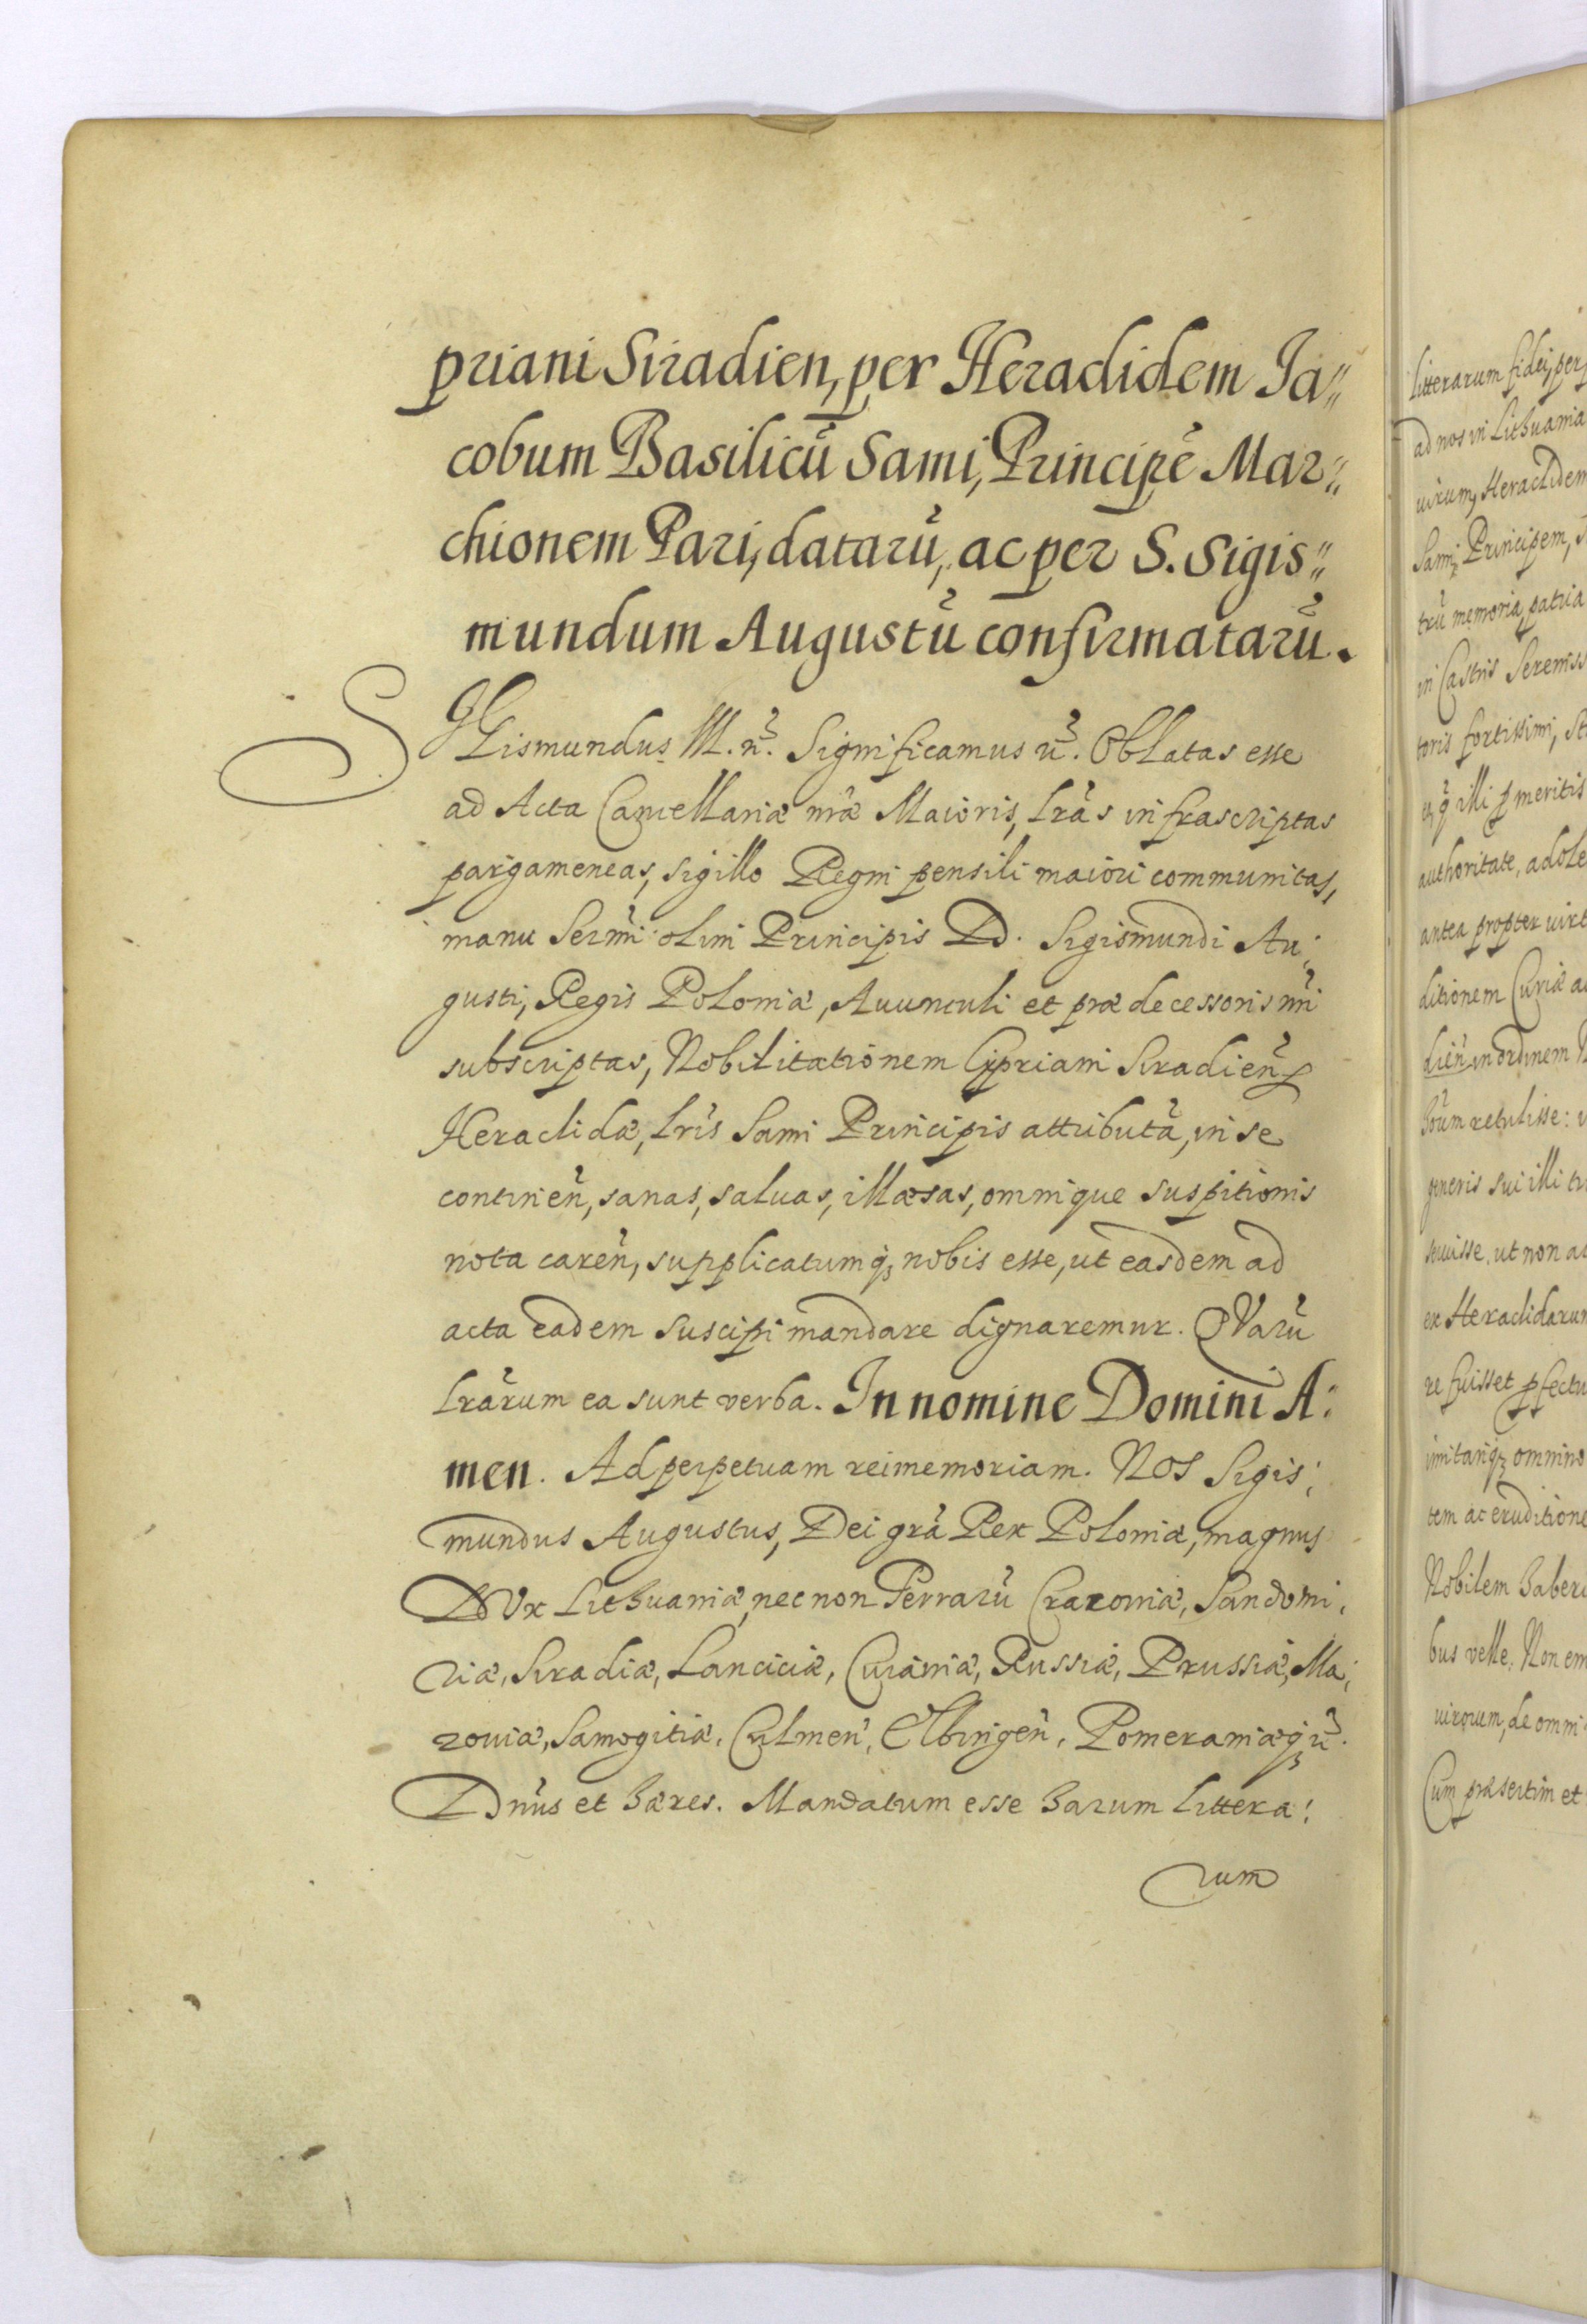 priani Siradien, per Heraclidem Ja„
cobum Basilicũ Sami, Principẽ Mar„
chionem Pari, datarũ, ac per S. Sigis„
mundum Augustũ confirmatarũ.
SIGismundus III. ñ. Significamus ũ. Oblatas esse
ad Acta Cancellariæ nr̃æ Maioris, Lr̃as infrascriptas
pargameneas, sigillo Regni pensili maiori communitas,
manu Serm̃i olim Principis Dd. Sigismundi Au:
gusti, Regis Poloniæ, Auunculi et prædecessoris nr̃i
subscriptas, Nobilitationem Cipriani Siradieñ p
Heraclidæ, Lr̃is Sami Principis attributã, in se
contineñ, sanas, saluas, illæsas, omnique suspitionis
nota careñ, supplicatumq₃ nobis esse, ut easdem ad
acta eadem suscipi mandare dignaremur. QVarũ
Lr̃arum ea sunt verba. In nomine Domini A:
men. Ad perpetuam rei memoriam. NOS Sigis:
mundus Augustus, Dei gr̃a Rex Poloniæ, magnus
DVx Lithuaniæ, nec non Terrarũ Cracoviæ, Sandomi:
riæ, Siradiæ, Lanciciæ, Cuiaviæ, Russiæ, Prussiæ, Ma:
zoviæ, Samogitiæ, Culmeñ, Elbingeñ, Pomeraniæq₃ ũ.
Dñus et hæres. Mandatum esse harum Littera:
rum
litterarum fidei, per
ad nos in Lithuania
uirum, Heraclidem
Sami Principem,
trũ memoria, patria
in Castris Sereniss
toris fortissimi,
illi p meritis
authoritate, adole
antea propter uirt
ditionem Curiæ
dieñ in ordinem
retulisse:
generis sui illi
ut non
ex Heraclidarum
re fuisset pfectu
imitariq₃ omnino
tem ac eruditione
Nobilem habere
bus velle. Non
uirorum, de omni
Cum præsertim et